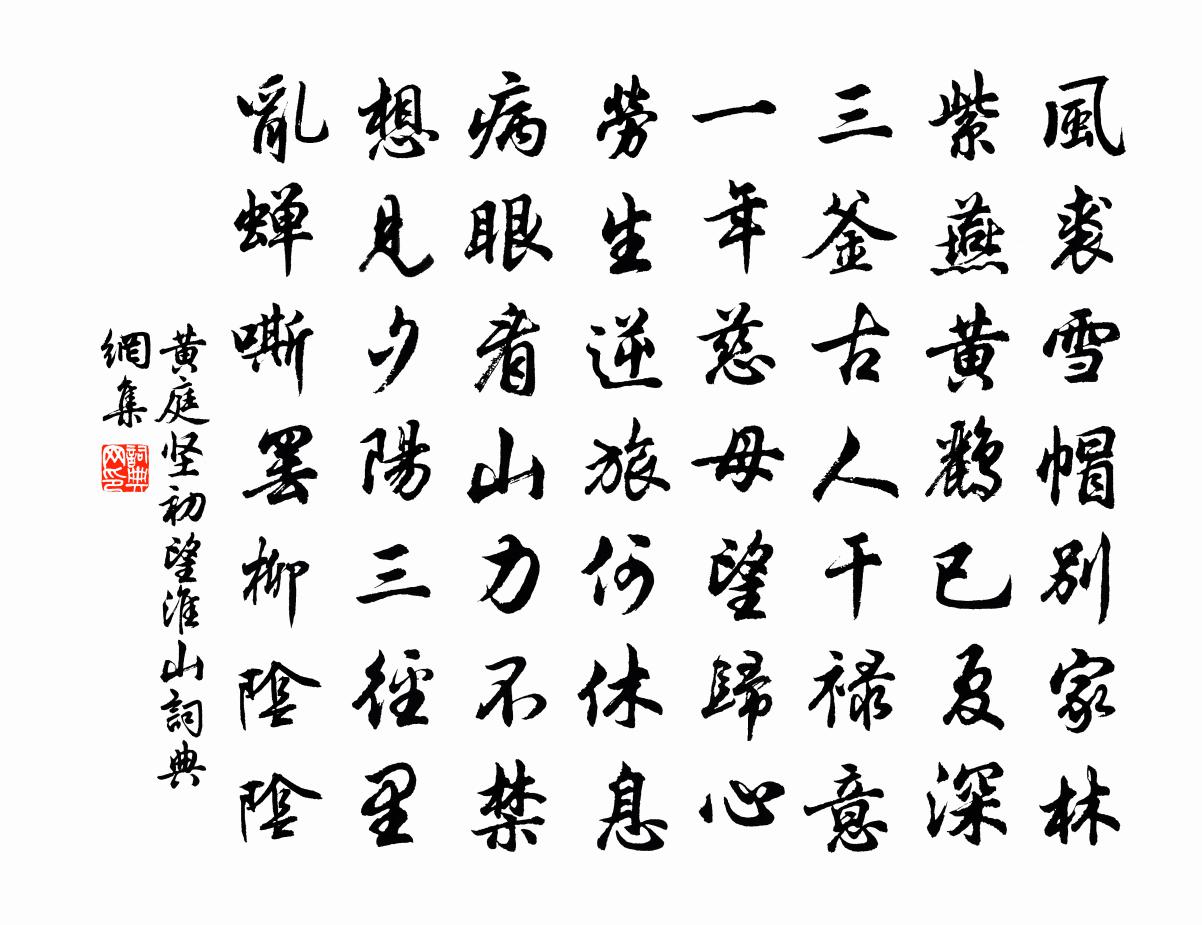 風裘雪帽別家林
紫燕黃鸝已夏深
三釜古人干禄意
一年慈母望歸心
勞生逆旅何休息
病眼看山力不禁
想見夕陽三徑里
亂蝉嘶罢柳陰陰
黄庭坚初望淮山詞典
網集
詞典
网印